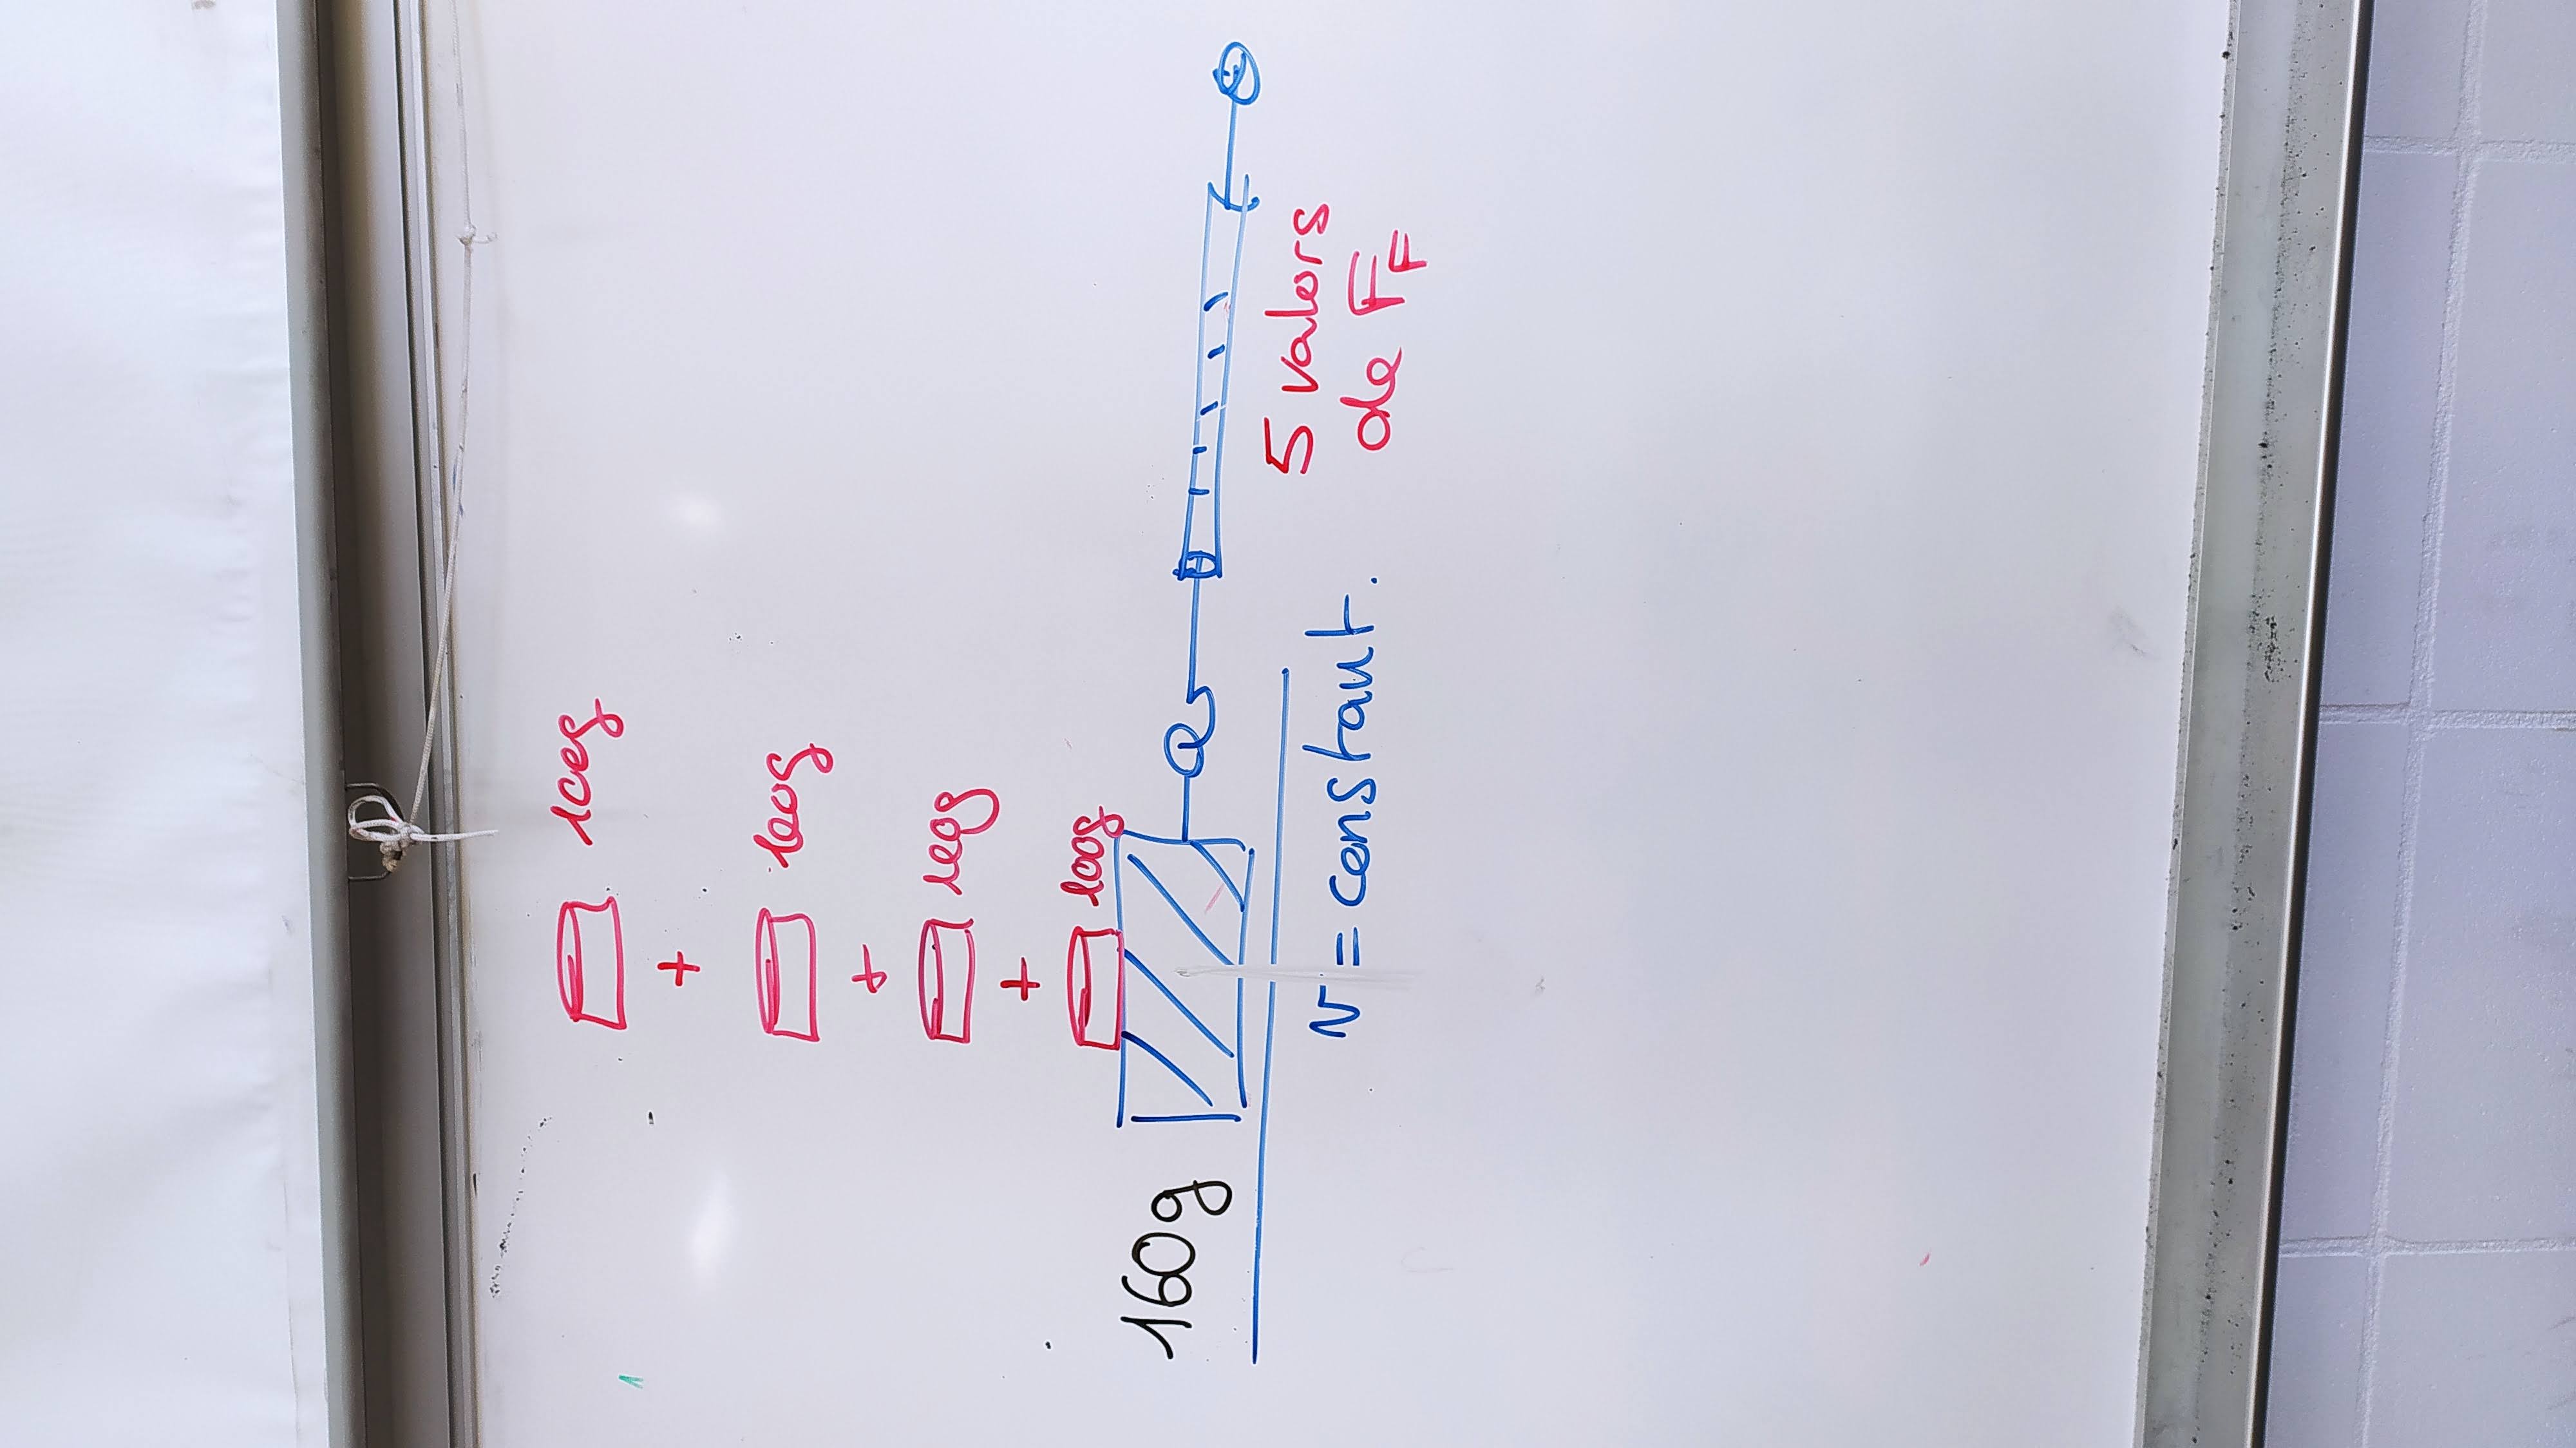 100g
+
100g
+
100g
+
100g
160g
5 valors
de FF
v = constant.